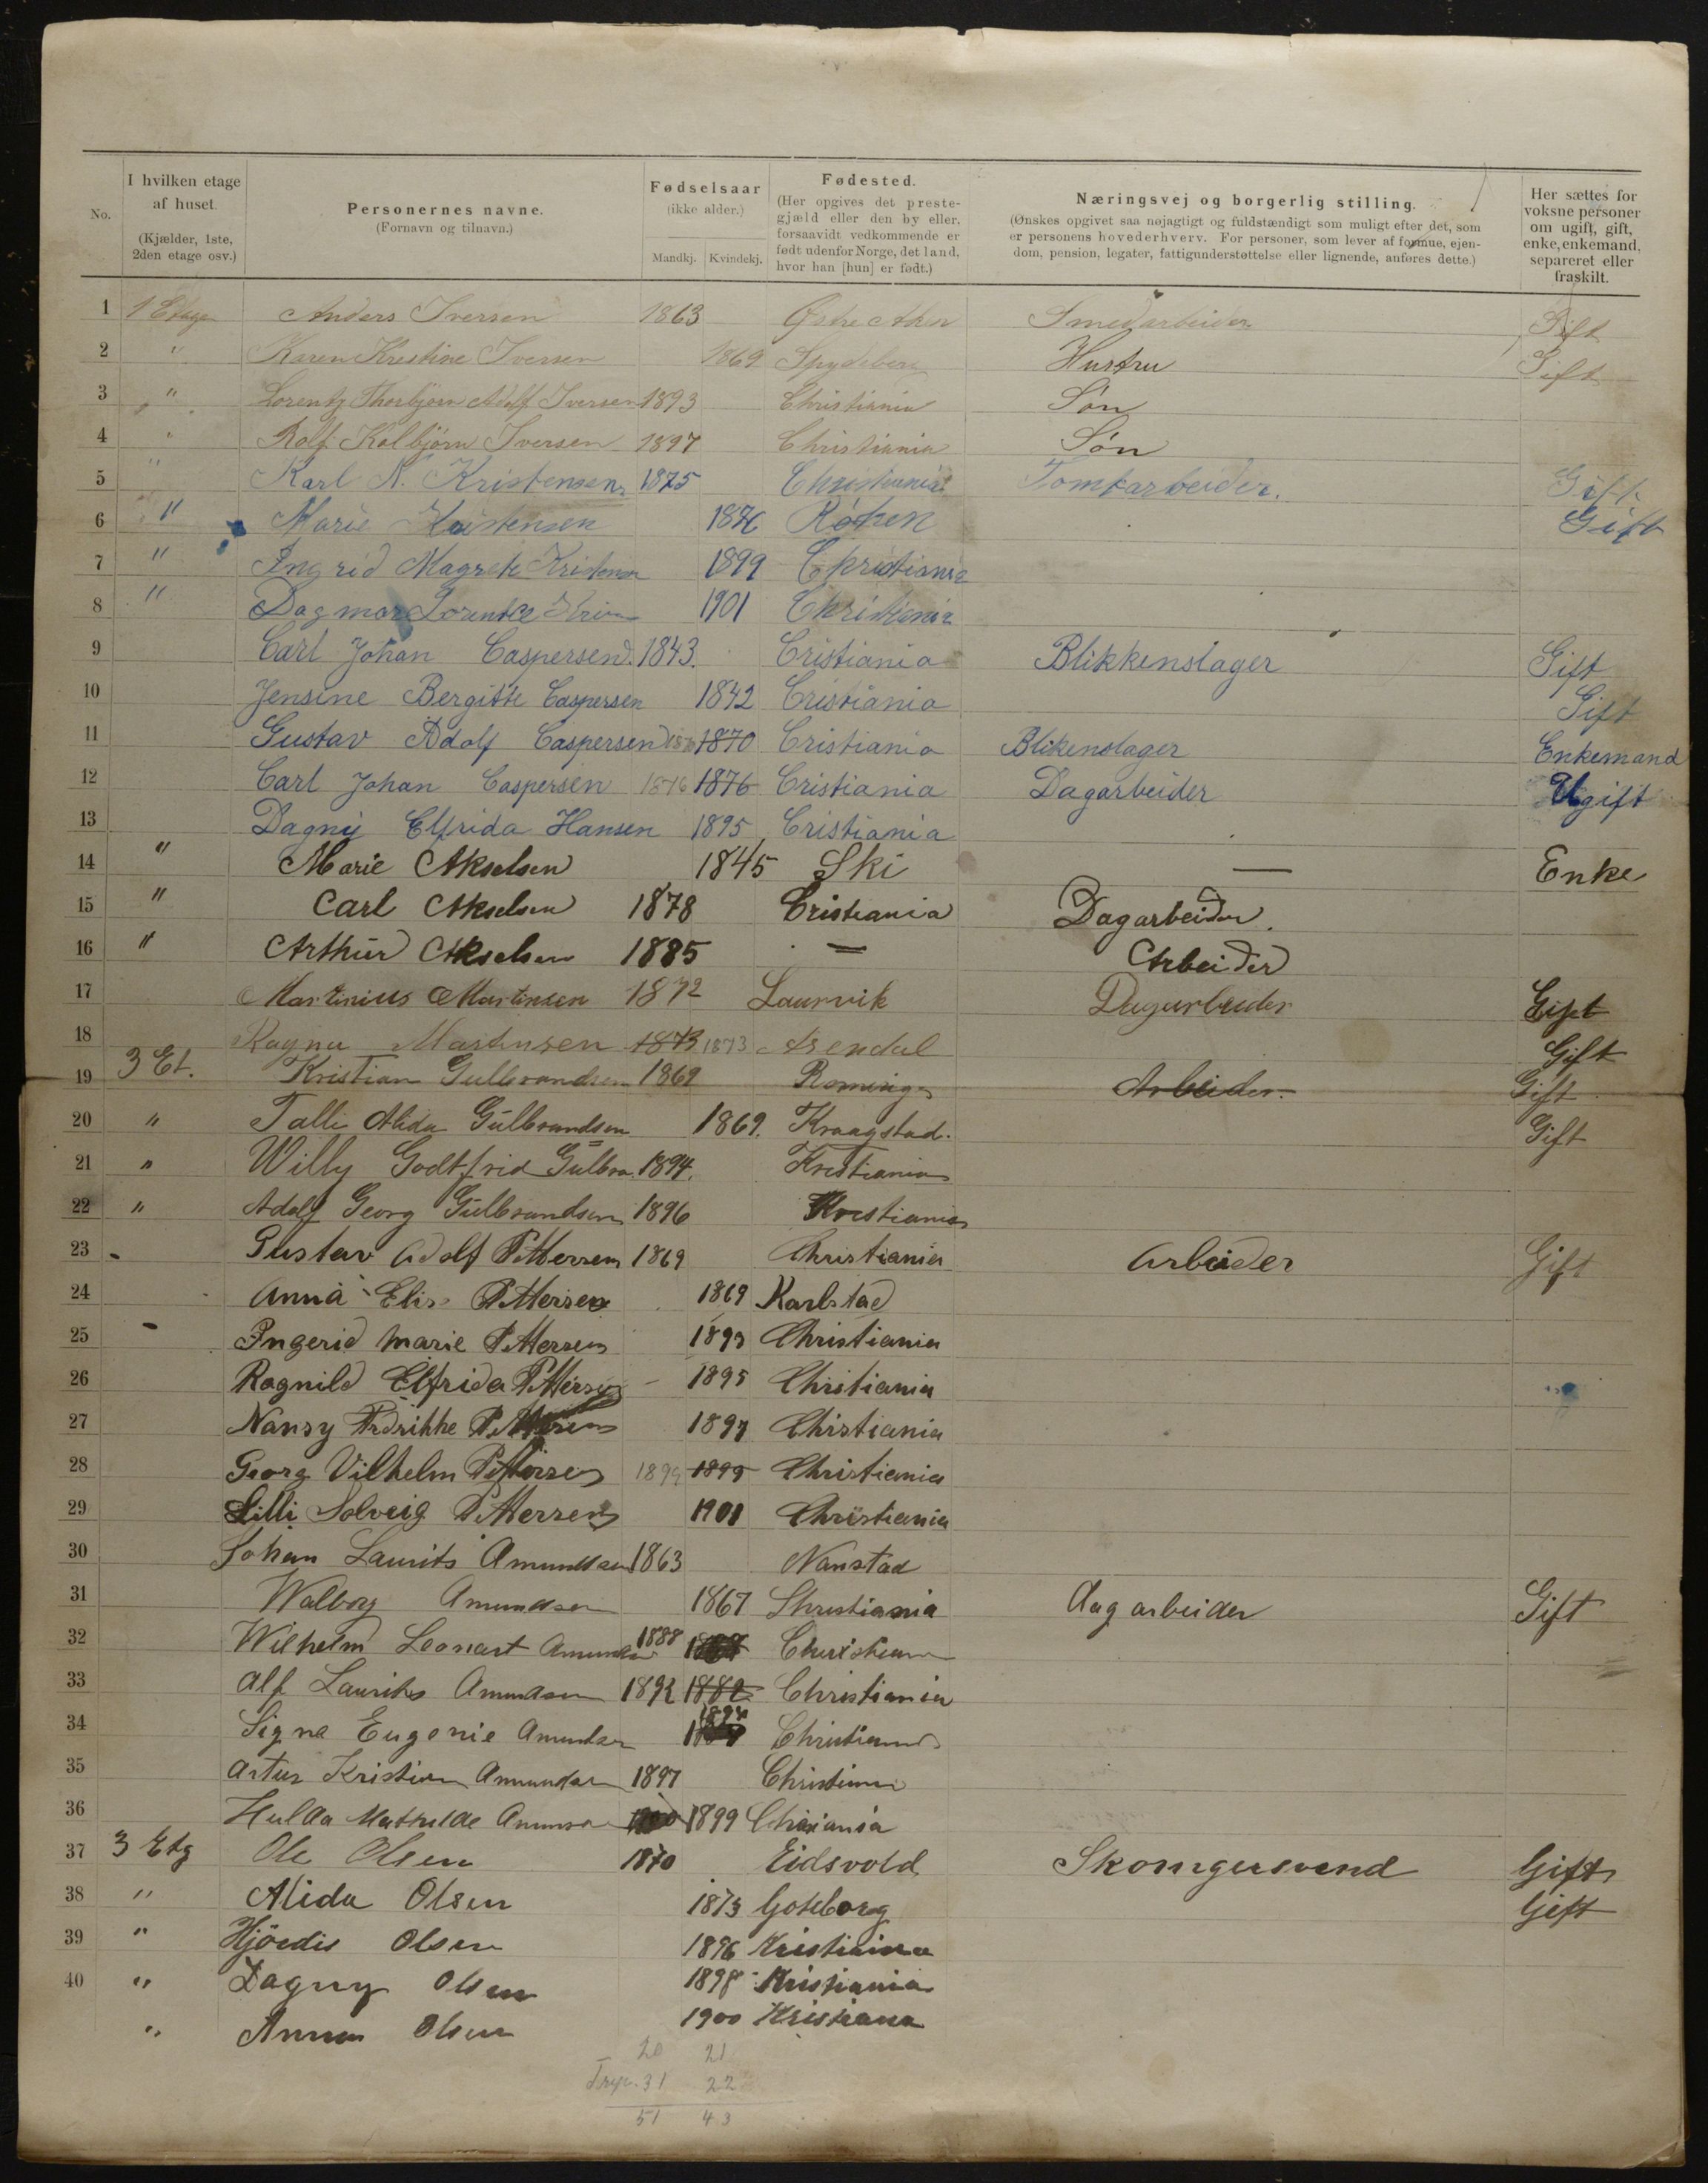 No. I hvilken etage af huset. (Kjælder, 1ste, 2den etage osv.) Personernes navne. (Fornavn og tilnavn.) Fødselsaar (ikke alder.) Mandkj. Kvindekj. Fødested. (Her opgives det prestegjæld eller den by eller, forsaavidt vedkommende er født udenfor Norge, det land, hvor han [hun] er født.) Næringsvej og borgerlig stilling. (Ønskes opgivet saa nøjagtigt og fuldstændigt som muligt efter det, som er personens hovederhverv. For personer, som lever af formue, ejendom, pension, legater, fattigunderstøttelse eller lignende, anføres dette.) Her sættes for voksne personer om ugift, gift, enke, enkemand, separeret eller fraskilt.
1 1 Etage Anders Iversen 1863 Østre Aker Smedarbeider Gift
2 " Karen Kristine Iversen 1869 Spydeberg Hustru Gift
3 " Lorentz Thorbjörn Adolf Iversen 1893 Christiania Sön
4 " Rolf Kolbjörn Iversen 1897 Christiania Sön
5 " Karl N. Kristensen 1875 Christiania Tomtarbeider. Gift
6 " Marie Kristensen 1876 Röken Gift
7 " Ingrid Magrete 1899 Christiania
8 " Dagmar 1901 Christiania
9 Carl Johan Caspersen. 1843. Cristiania Blikkenslager Gift
10 Jensine Bergitte Caspersen 1842 Cristiania Gift
11 Gustav Adolf Caspersen 1870 1870 Cristiania Blikenslager Enkemand
12 Carl Johan Caspersen 1876 1876 Cristiania Dagarbeider Ugift
13 Dagny Elfrida Hansen 1895 Cristiania
14 " Marie Akselsen 1845 Ski — Enke
15 " Carl Akselsen 1878 Cristiania Dagarbeider.
16 " Arthur Akselsen 1885 — Arbeider
17 Martinius Martinsen 1872 Laurvik Dagarbeider Gift
18 Ragna Martinsen 1873 1873 Arendal Gift
19 3 Et. Kristian Gulbrandsen 1869 Arbeider. Gift
20 " Talli Alida Gulbrandsen 1869. Kraagstad. Gift
21 " Willy Godtfrid Gulbra 1894. Kristiania
22 " Adolf Georg Gulbrandsen 1896 Kristiania
23 Gustav Adolf Pettersen 1869 Christiania Arbeider Gift
24 Anna Elis Pettersen 1869 Karlstad
25 Ingerid Marie Pettersen 1893 Christiania
26 Ragnild Elfrida Pettersen 1895 Christiania
27 Nansy Fredrikke Pettersen 1897 Christiania
28 Georg Vilhelm Pettersen 1899 1899 Christiania
29 Lilli Solveig Pettersen 1901 Christiania
30 Johan Laurits Amundsen 1863 Nanstad
31 Walborg Amundsen 1867 Christiania Dagarbeider Gift
32 Wilhelm Leonart Amundsen 1888 Christiania
33 Alf Laurits Amundsen 1892 1882 Christiania
34 Signe Eugenie Amundsen 1894 Christiania
35 Artur Kristian Amundsen 1897 Christiania
36 Hulda Mathilde Amunsen 1900 1899 Chisiania
37 3 Etg Ole Olsen 1870 Eidsvold Skomgersvend Gift
38 " Alida Olsen 1873 Goteborg Gift
39 " Hjördis Olsen 1896 Kristiania
40 " Dagny Olsen 1898 Kristiania
" Anna Olsen 1900 Kristiana
20 21
31 22
51 43